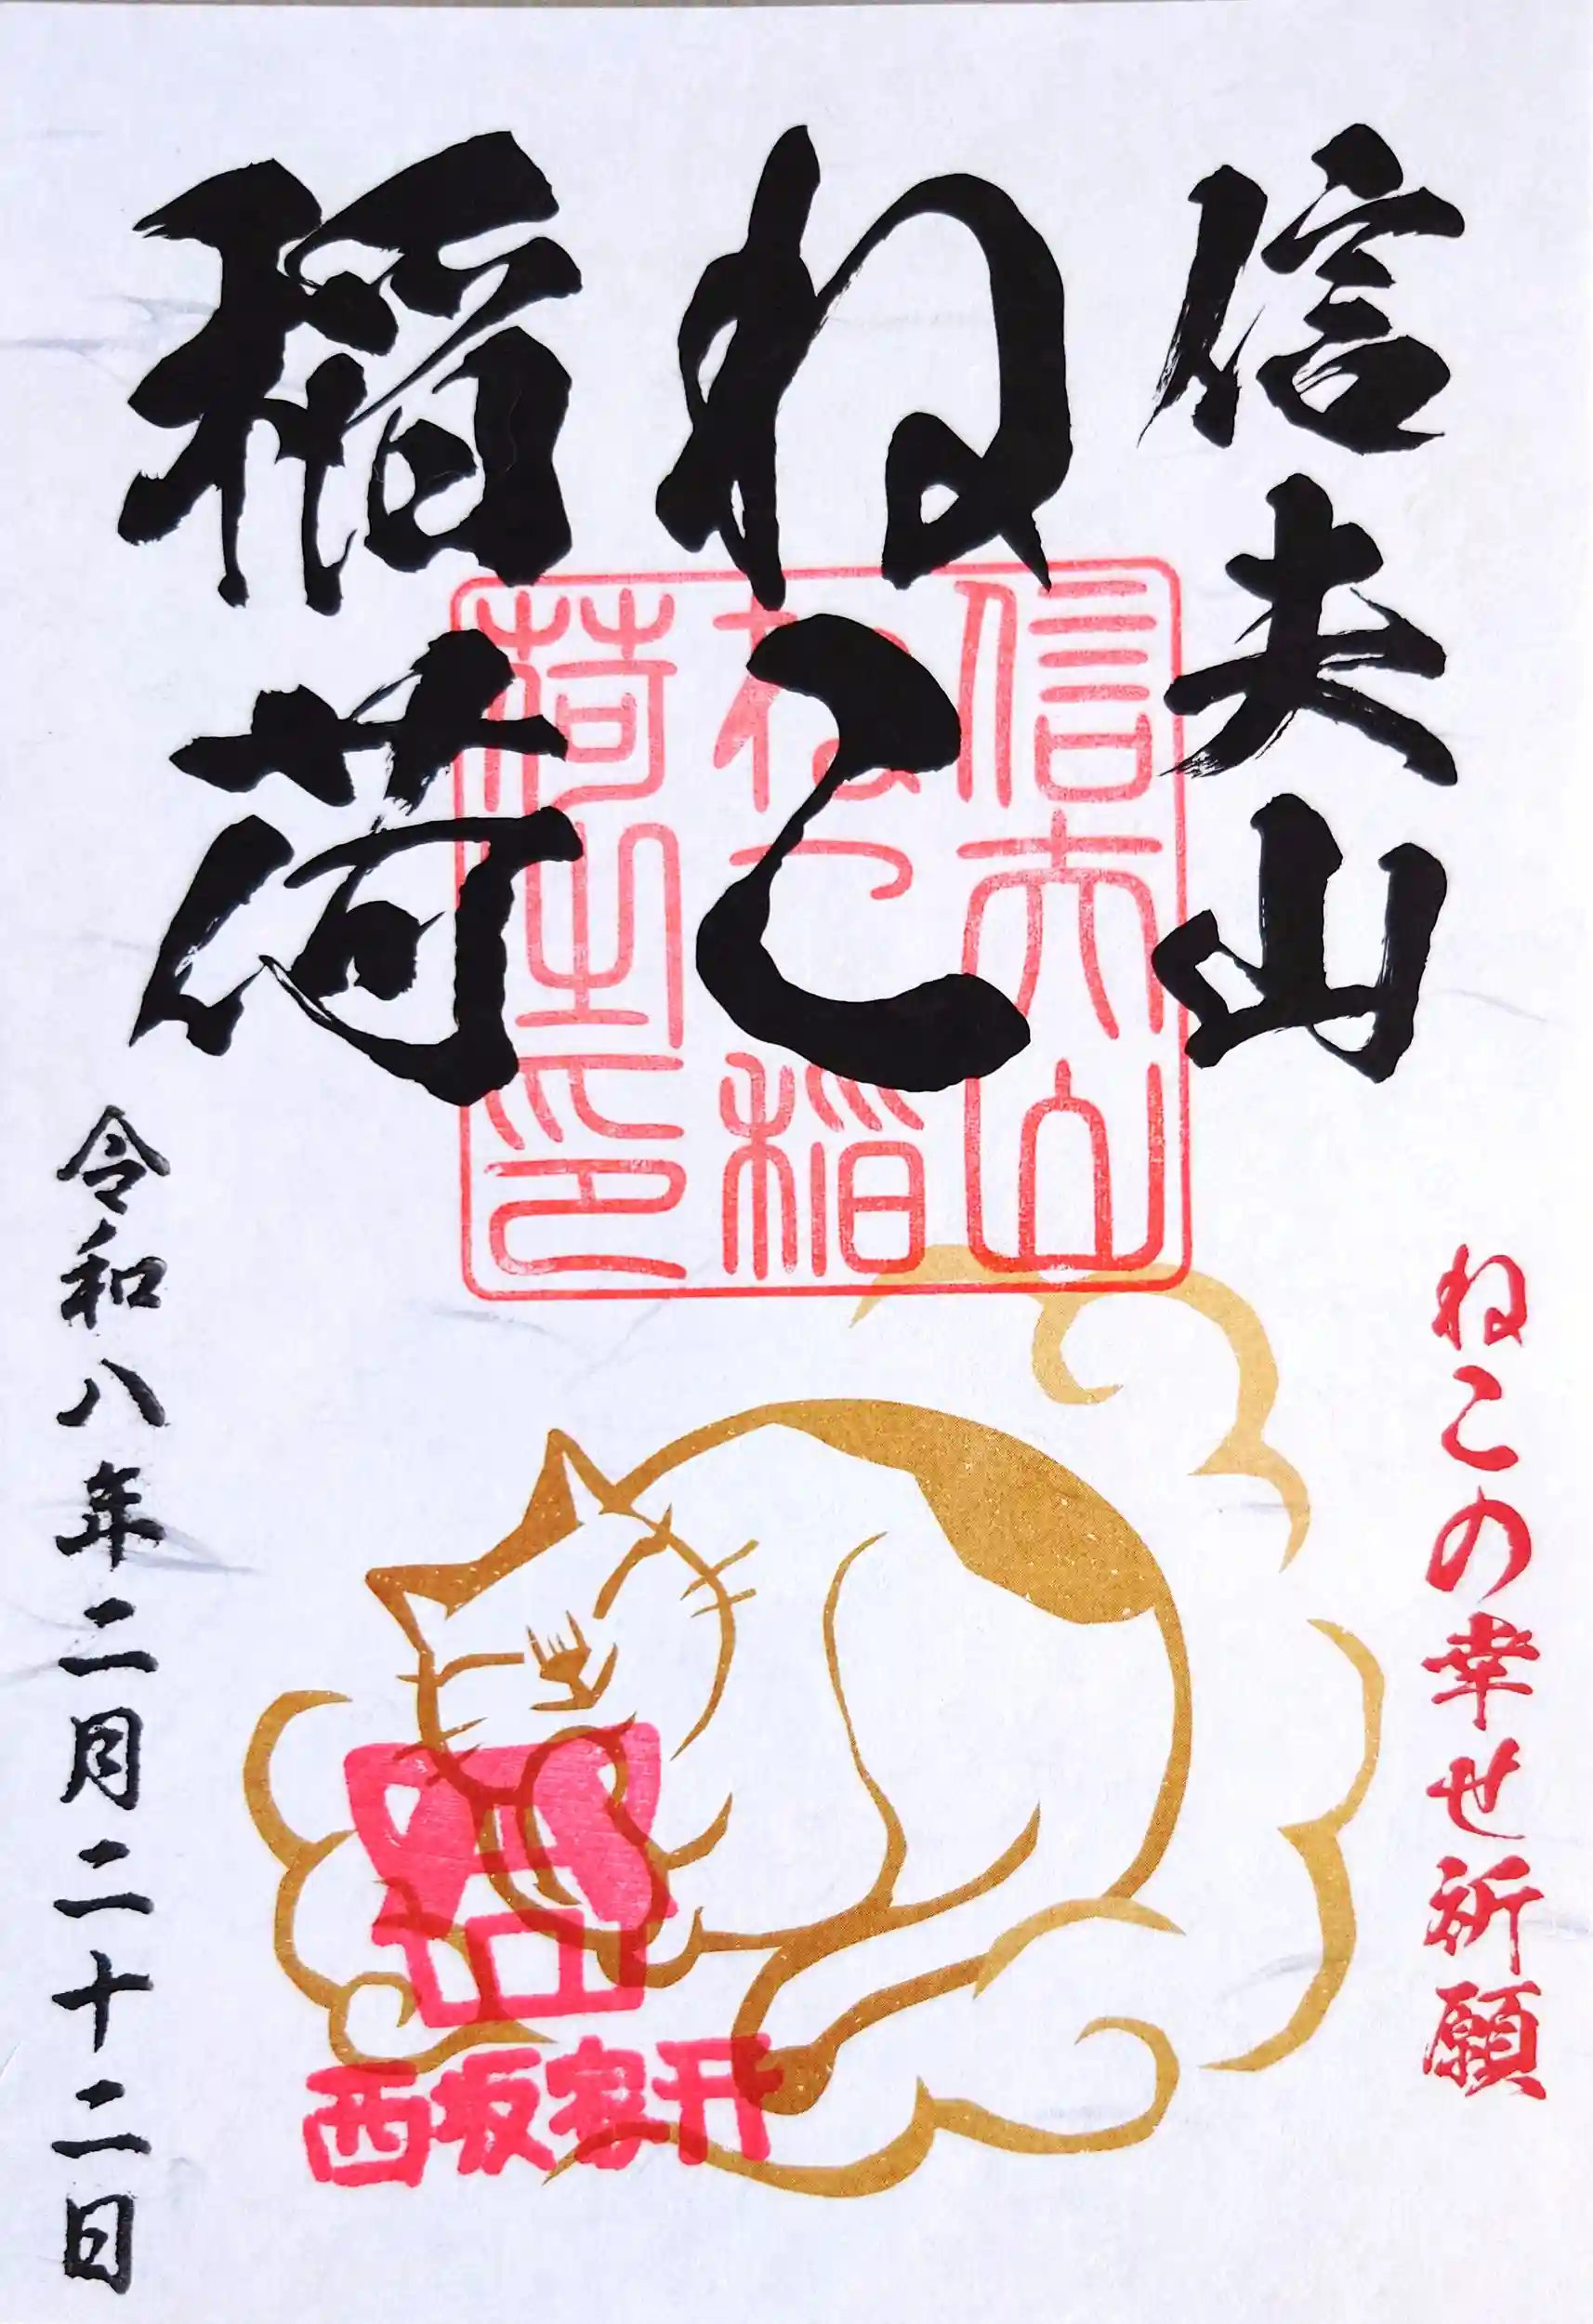 信夫山
ねこ
稲荷
信夫山
ねこ稲
荷之印
ねこの幸せ祈願
西坂家开
令和八年二月二十二日